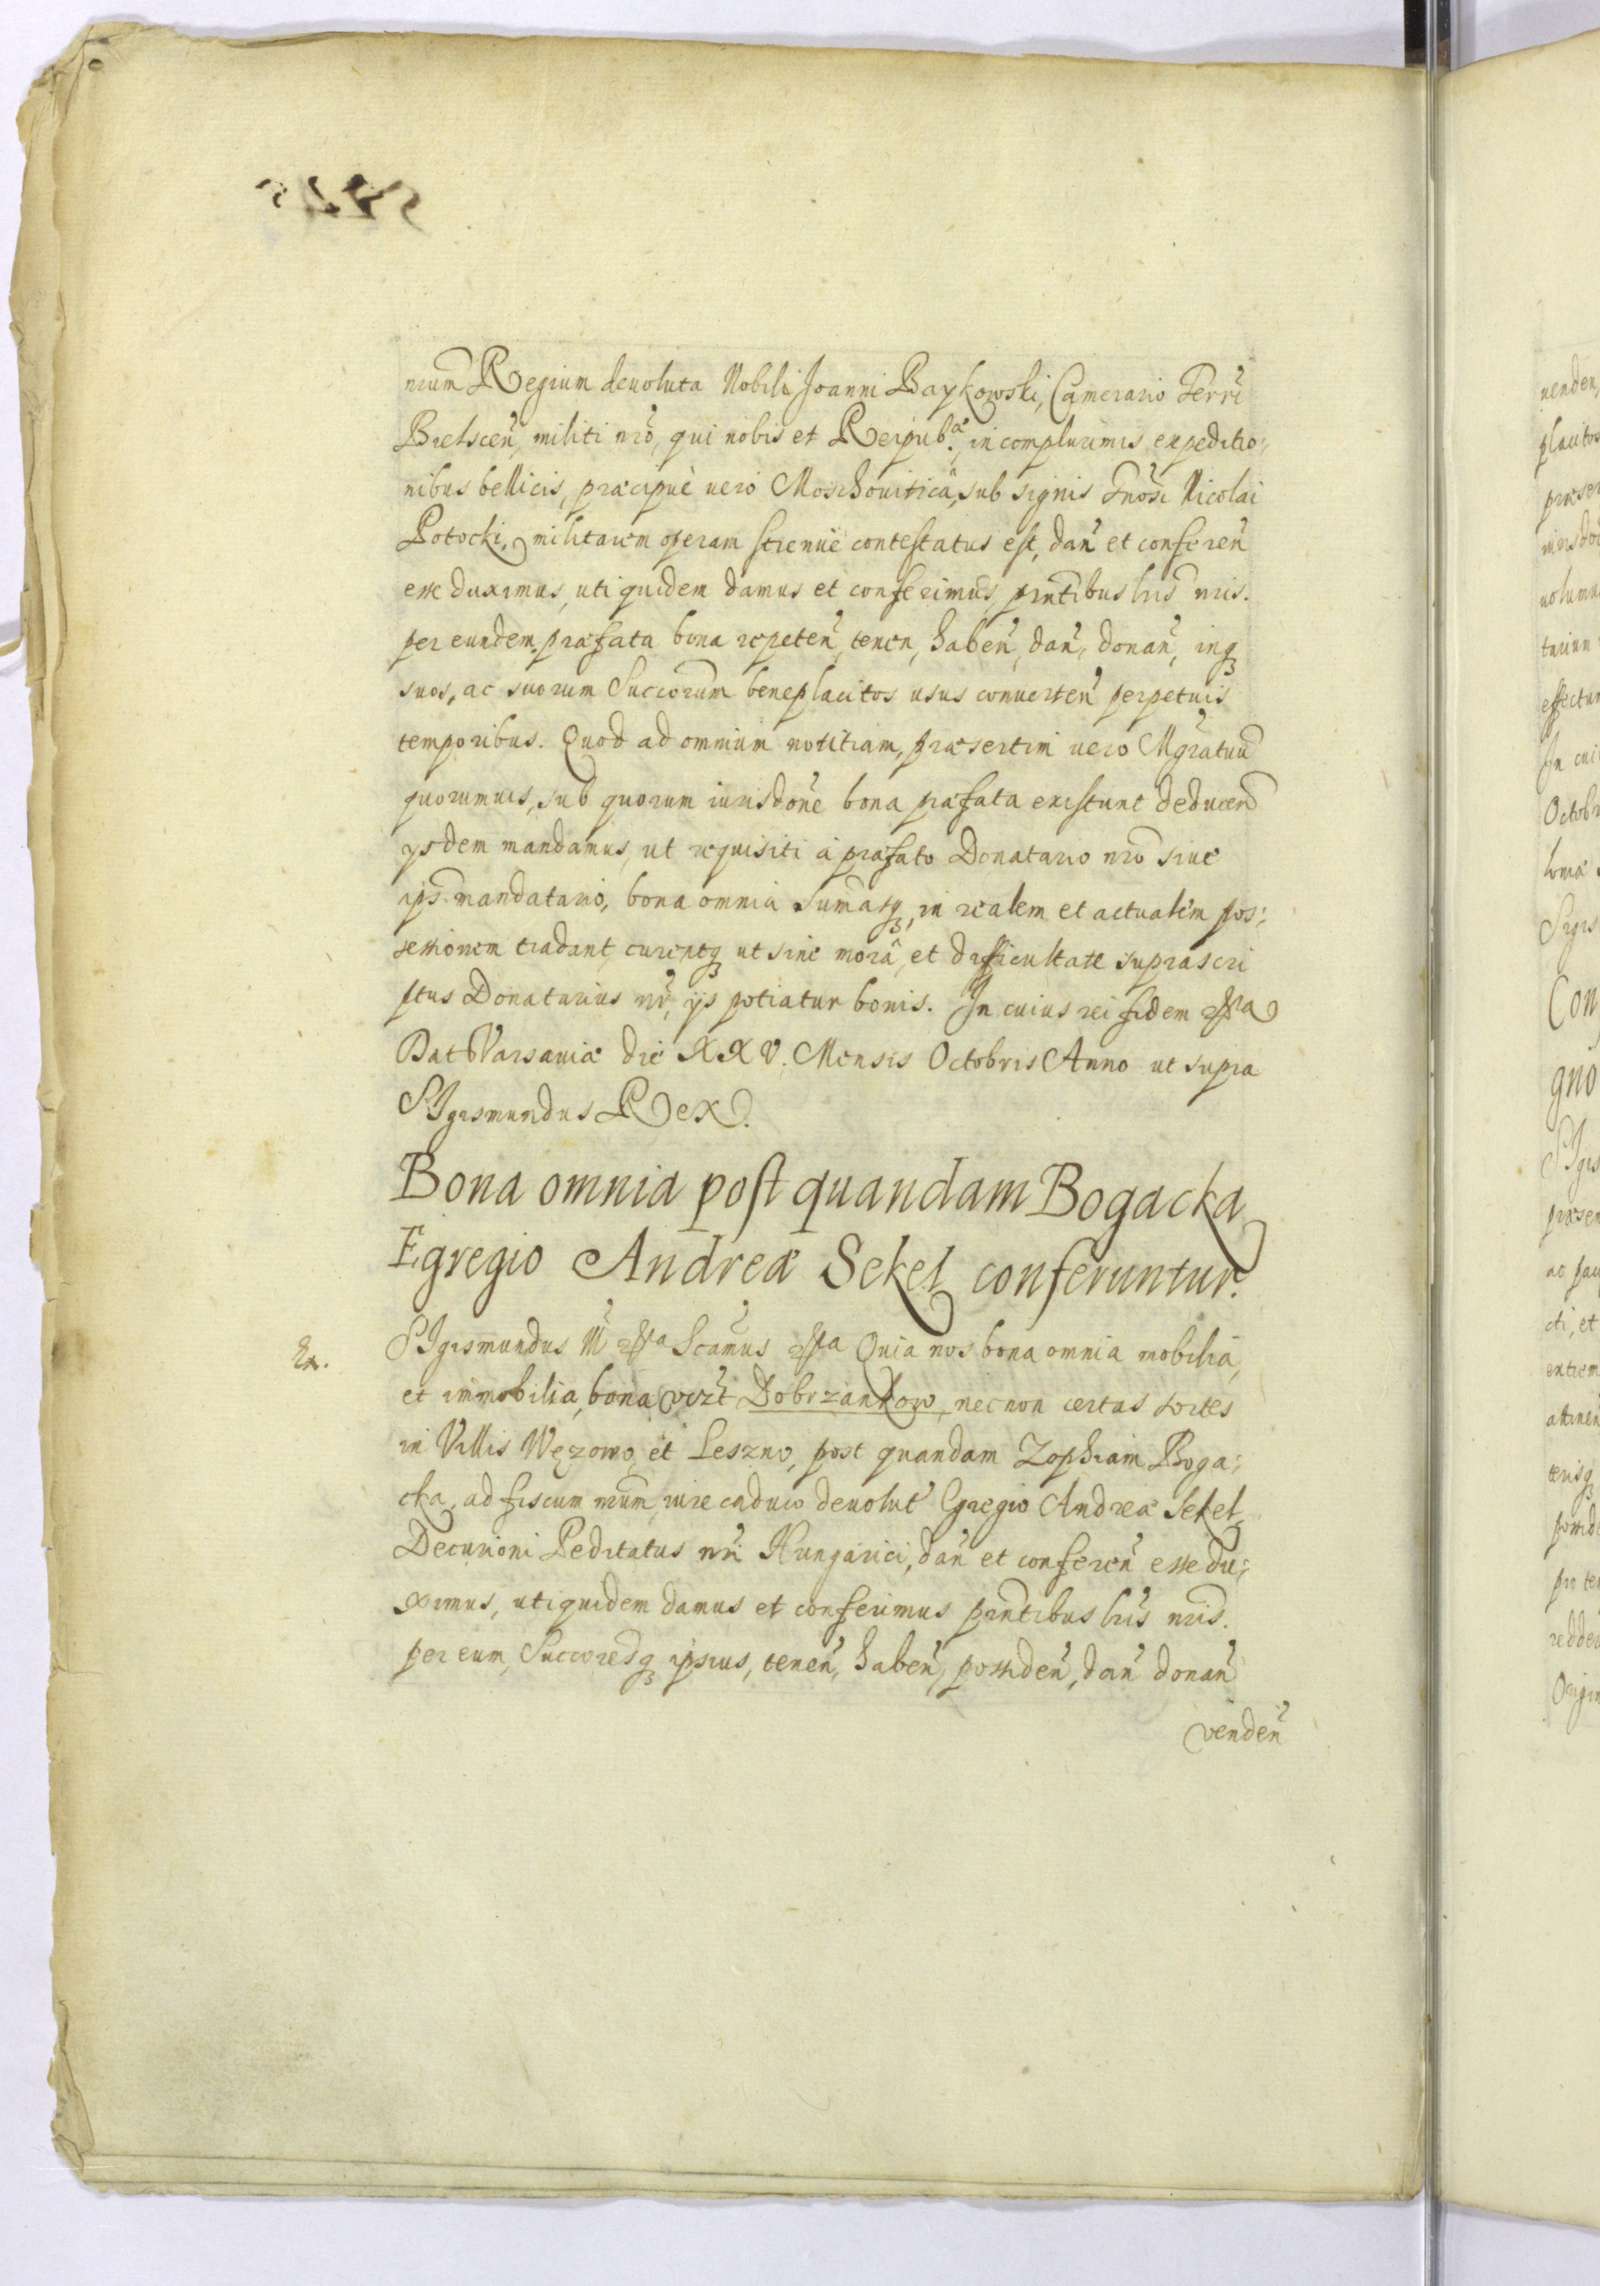 nrum Regium devoluta Nobili Joanni Baykowski, Camerario Terrae
Bielscen, militi nro, qui nobis et Reipub.ae, in complurimis expeditio:
nibus bellicis, praecipuè uero Moschouiticâ, sub signis Gnosi Nicolai
Potocki, militarem operam strenuè contestatus est, dan et conferen
esse duximus, uti quidem damus et conferimus, pntibus lris nris.
per eundem praefata bona repeten, tenen, haben, dan, donan, inq3
suos, ac suorum Succorum beneplacitos usus conuerten perpetuis
temporibus. Quod ad omnium notitiam, praesertim uero Mgratuu
quorumuis, sub quorum iurisdone bona praefata existunt deducend
ysdem mandamus, ut requisiti à praefato Donatario nro siue
ips mandatario, bona omnia sumasq3, in realem et actualem pos:
sessionem tradant, curentq3 ut sine morâ, et difficultate suprascri
ptus Donatarius nr, ijs potiatur bonis. In cuius rei fidem etta
Dat Varsauiae die XXV. Mensis Octobris Anno ut supra
SIgismundus Rex.
Bona omnia post quandam Bogacka
Egregio Andreae Sekel conferuntur.
Ex.
SIgismundus III etta Scamus etta Quia nos bona omnia mobilia,
et immobilia, bona vizt Dobrzankow, nec non certas sortes
in Villis Węzowo, et Leszno, post quandam Zophiam Boga:
cka, ad fiscum nrum, iure caduco deuolut Egregio Andreae Sekel,
Decurioni Peditatus nri Hungarici, dan et conferen esse du:
ximus, uti quidem damus et conferimus pntibus lris nris.
per eum, Succoresq3 ipsius, tenen, haben, possiden, dan donan
venden